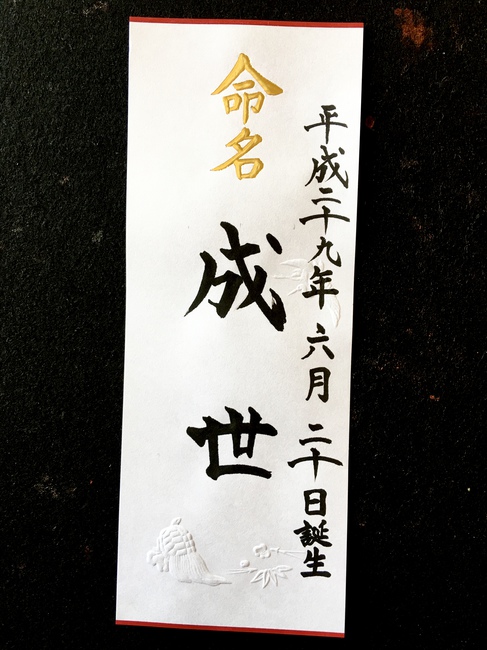 平成二十九年 六月 二十日誕生
命名
成世